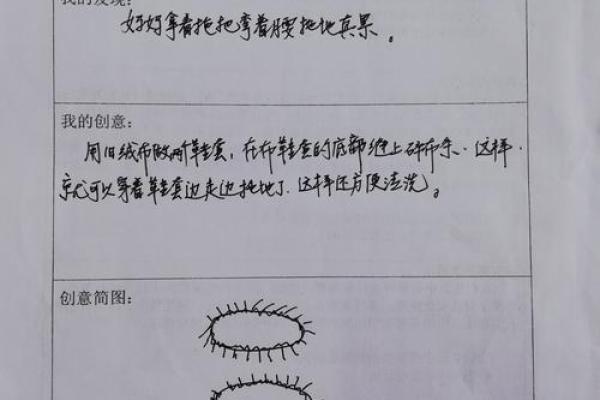 我的发现:
好好拿着拖把弯着腰拖地真累。
我的创意:
用旧绒布做两个鞋套,在布鞋套的底部缝上碎布条.这样.
就可以穿着鞋套边走边拖地了.这样还方便清洗。
创意简图: